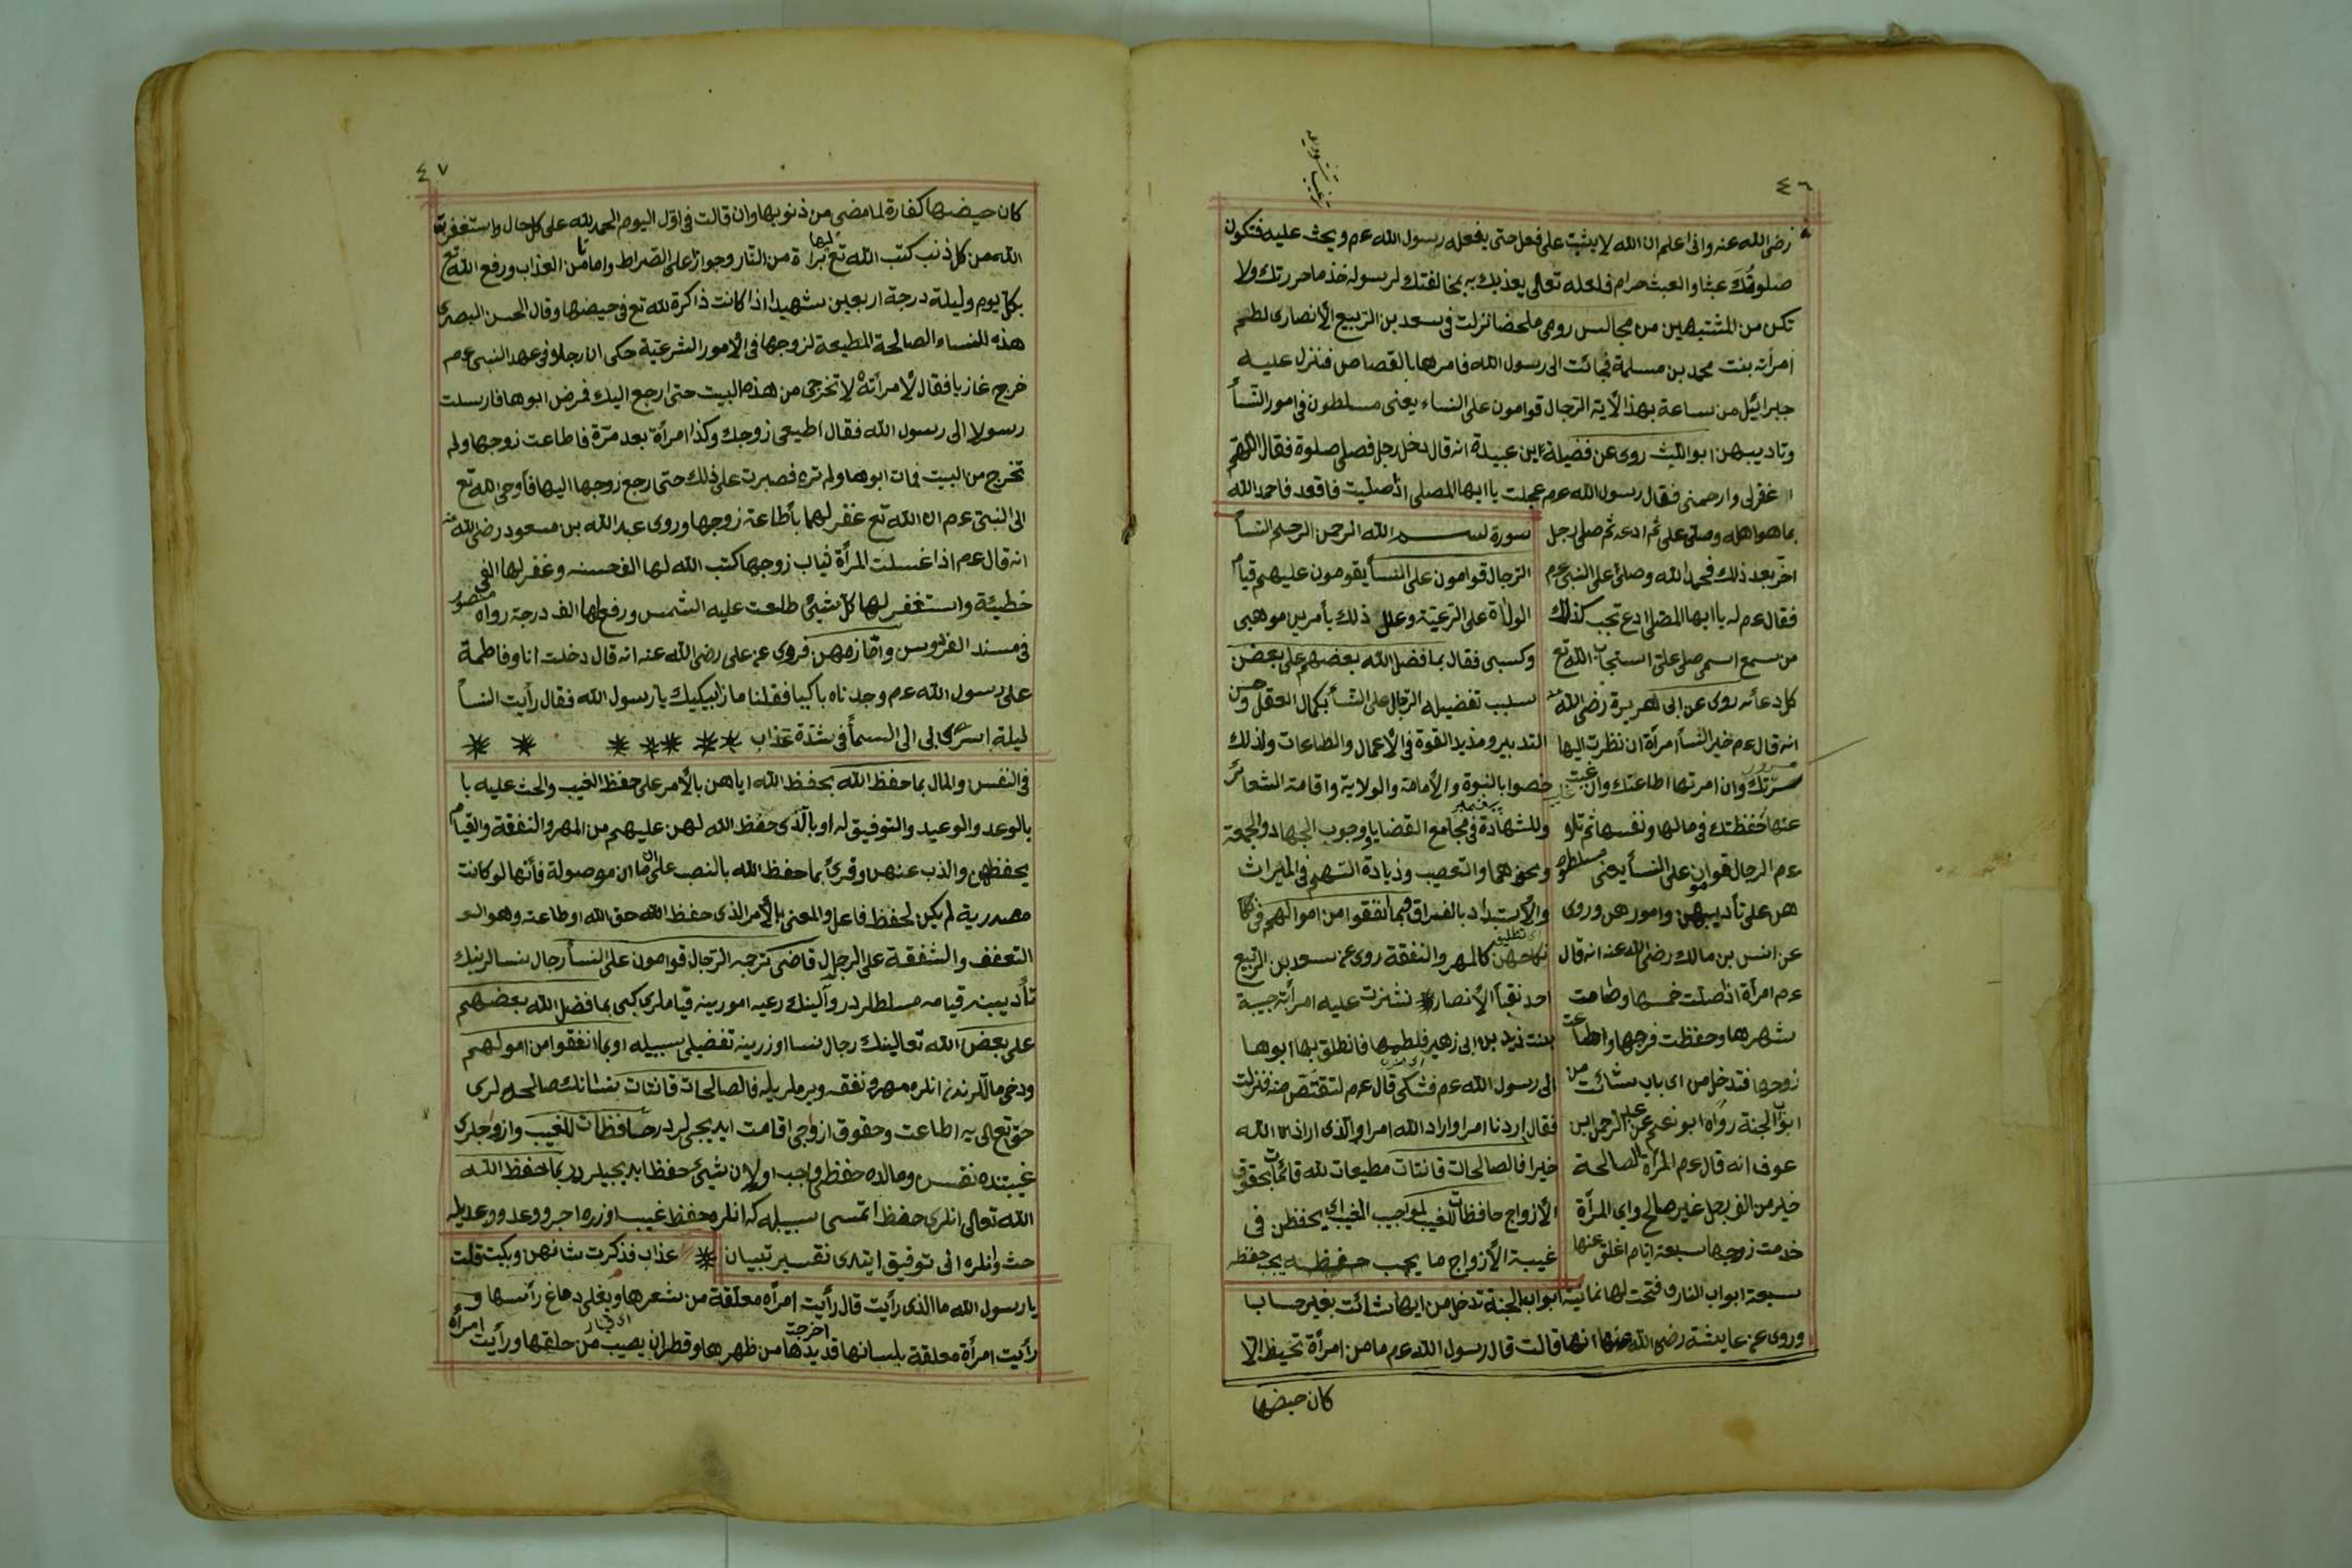 ٤٦
رضى الله عنه وانى اعلم ان الله لا يثبت على فعل حتى يفعله رسول الله عم ويحث عليه فتكون
صلوتك عبثا والعبث حرام فلعله تعالى يعذبك به بمخالفتك لرسوله خذ ما حررتك ولا
تكن من المشتبهين من مجالس رومى ملخصا نزلت فى سعد بن الربيع الأنصارى لطم
امرأته بنت محمد بن مسلمة فجائت الى رسول الله فامرها بالقصاص فنزل عليه
جبرائيل من ساعة بهذا الآية الرجال قوامون على النساء يعنى مسلطون فى امور النسأ
وتاديبهن ابو الليث روى عن فضيلة ابن عبيدة انه قال دخل رجل فصلى صلوة فقال اللهم
اغفرلى وارحمنى فقال رسول الله عم عجلت يا ايها المصلى اذا صليت فاقعد فاحمد الله
بما هو اهله وصلى على ثم ادعه ثم صلى رجل
اخر بعد ذلك فحمد الله وصلى على النبى عم
فقال عم له يا ايها المصلى ادع تجب كذلك
من سمع اسمى صلى على استجاب الله تع
كل دعائه روى عن ابى هريرة رضى الله عنه
انه قال عم خير النسأ امرأة ان نظرت اليها
سرتك وان امرتها اطاعتك وان غبت
عنها حفظتك فى مالها ونفسها ثم تلا
عم الرجال قوامون على النسأ يعنى مسلطون
هن على تأديبهن وامورهن وروى
عن انس بن مالك رضى الله عنه انه قال
عم امرأة اذا صلت خمسها وصامت
شهرها وحفظت فرجها واطاعت
زوجها فتدخل من اى باب شائت من
ابواب الجنة رواه ابو نعيم عن عبد الرحمن ابن
عوف انه قال عم المرأة الصالحة
خير من الف رجل غير صالح واى المرأة
خدمت زوجها سبعة ايام اغلق عنها
سورة بسم الله الرحمن الرحيم النسأ
الرجال قوامون على النسأ يقومون عليهم قيام
الولاة على الرعية وعلل ذلك بأمرين موهبى
وكسبى فقال بما فضل الله بعضهم على بعض
بسبب تفضيله الرجال على النسأ بكمال العقل وحسن
التدبير ومذيد القوة فى الأعمال والطاعات ولذلك
خصوا بالنبوة والأمامة والولاية واقامة الشعائر
وللشهادة فى مجامع القضايا ووجوب الجهاد والجمعة
ونحوهما والتعصيب وزيادة السهم فى الميراث
والأستبداد بالفراق وبما انفقوا من اموالهم فى
نكاحهن كالمهر والنفقة روى عن سعد بن الربيع
احد نقبأ الأنصار نشزت عليه امرأته حبيبة
بنت زيد بن ابى زهير فلطمها فانطلق بها ابوها
الى رسول الله عم فشكى قال عم لتقتص منه فنزلت
فقال اردنا امرا واراد الله امرا والذى اراده الله
خيرا فالصالحات قانتات مطيعات لله قائمات بحقوق
الأزواج حافظات للغيب لمواجب الغيب اى يحفظن فى
غيبة الأزواج ما يجب حفظه يجب حفظه
سبعة ابواب النار وفتحت لها ثمانية ابواب الجنة تدخل من ايها شائت بغير حسابا
وروى عن عايشة رضى الله عنها انها قالت قال رسول الله عم ما من امرأة تحيض الا
كان حيضها
٤٧
كان حيضها كفارة لما مضى من ذنوبها وان قالت فى اول اليوم الحمد لله على كل حال واستغفرت
الله من كل ذنب كتب الله تع لها برأة من النار وجوازا على الصراط وامانا من العذاب ورفع الله تع
بكل يوم وليلة درجة اربعين شهيدا اذا كانت ذاكرة لله تع فى حيضها وقال الحسن البصرى
هذه للنساء الصالحة المطيعة لزوجها فى الأمور الشرعية حكى ان رجلا فى عهد النبى عم
خرج غازيا فقال لأمرأته لا تخرجى من هذه البيت حتى ارجع اليك فمرض ابوها فارسلت
رسولا الى رسول الله فقال اطيعى زوجك وكذا مرأة بعد مرة فاطاعت زوجها ولم
تخرج من البيت فمات ابوها ولم تره فصبرت على ذلك حتى رجع زوجها اليها فأوحى الله تع
الى النبى عم ان الله تع غفر لهما بأطاعة زوجها وروى عبد الله بن مسعود رضى الله عنه
انه قال عم اذا غسلت المرأة ثياب زوجها كتب الله لها الف حسنة وغفر لها الفى
خطيئة واستغفر لها كل شيئ طلعت عليه الشمس ورفع لها الف درجة رواه منصور
فى مسند الفردوس واما زمهن فروى عن على رضى الله عنه انه قال دخلت انا وفاطمة
على رسول الله عم وجدناه باكيا فقلنا ما زا يبكيك يا رسول الله فقال رأيت النسأ
ليلة اسرى بى الى السمأ فى شدة عذاب
فى النفس والمال بما حفظ الله بحفظ الله اياهن بالأمر على حفظ الغيب والحث عليه با
بالوعد والوعيد والتوفيق له او بالذى حفظ الله لهن عليهم من المهر والنفقة والقيام
يحفظهن والذب عنهن وقرئ بما حفظ الله بالنصب على ان ما موصولة فأنها لو كانت
مصدرية لم يكن لحفظ فاعل والمعنى بالأمر الذى حفظ الله حق الله او طاعته وهو الـ
التعفف والشفقة على الرجال قاضى ترجمه الرجال قوامون على النسأ رجال نسالرينك
تأديبينه قيامه مسلطلردر والينك رعيه امورينه قياملرى كبى بما فضل الله بعضهم
على بعض الله تعالينك رجال نسا اوزرينه تفضيلى سببيله او بما انفقوا من اموالهم
ودخى ماللرندن انلره مهر ونفقه ويرملريله فالصالحات قانتات نسانك صالحه لرى
حق تعالى يه اطاعت وحقوق ازواجى اقامت ايديجى لردر حافظات للغيب وازواجلرى
غيبتنده نفس ومالده حفظى واجب اولان شيئ حفظ ايديجيلردر بما حفظ الله
الله تعالى انلرى حفظ اتمسى سببيله كه انلره حفظ غيب اوزره اجر ووعد ووعيدله
حث وانلره انى توفيق ايتدى تفسير تبيان
عذاب فذكرت شانهن وبكيت قلت
يا رسول الله ما الذى رأيت قال رأيت امرأه معلقة من شعرها ويغلى دماغ رأسها و
رأيت امرأة معلقة بلسانها قد يدها اخرجت من ظهرها وقطران يصيب من حلقها ورأيت امرأة